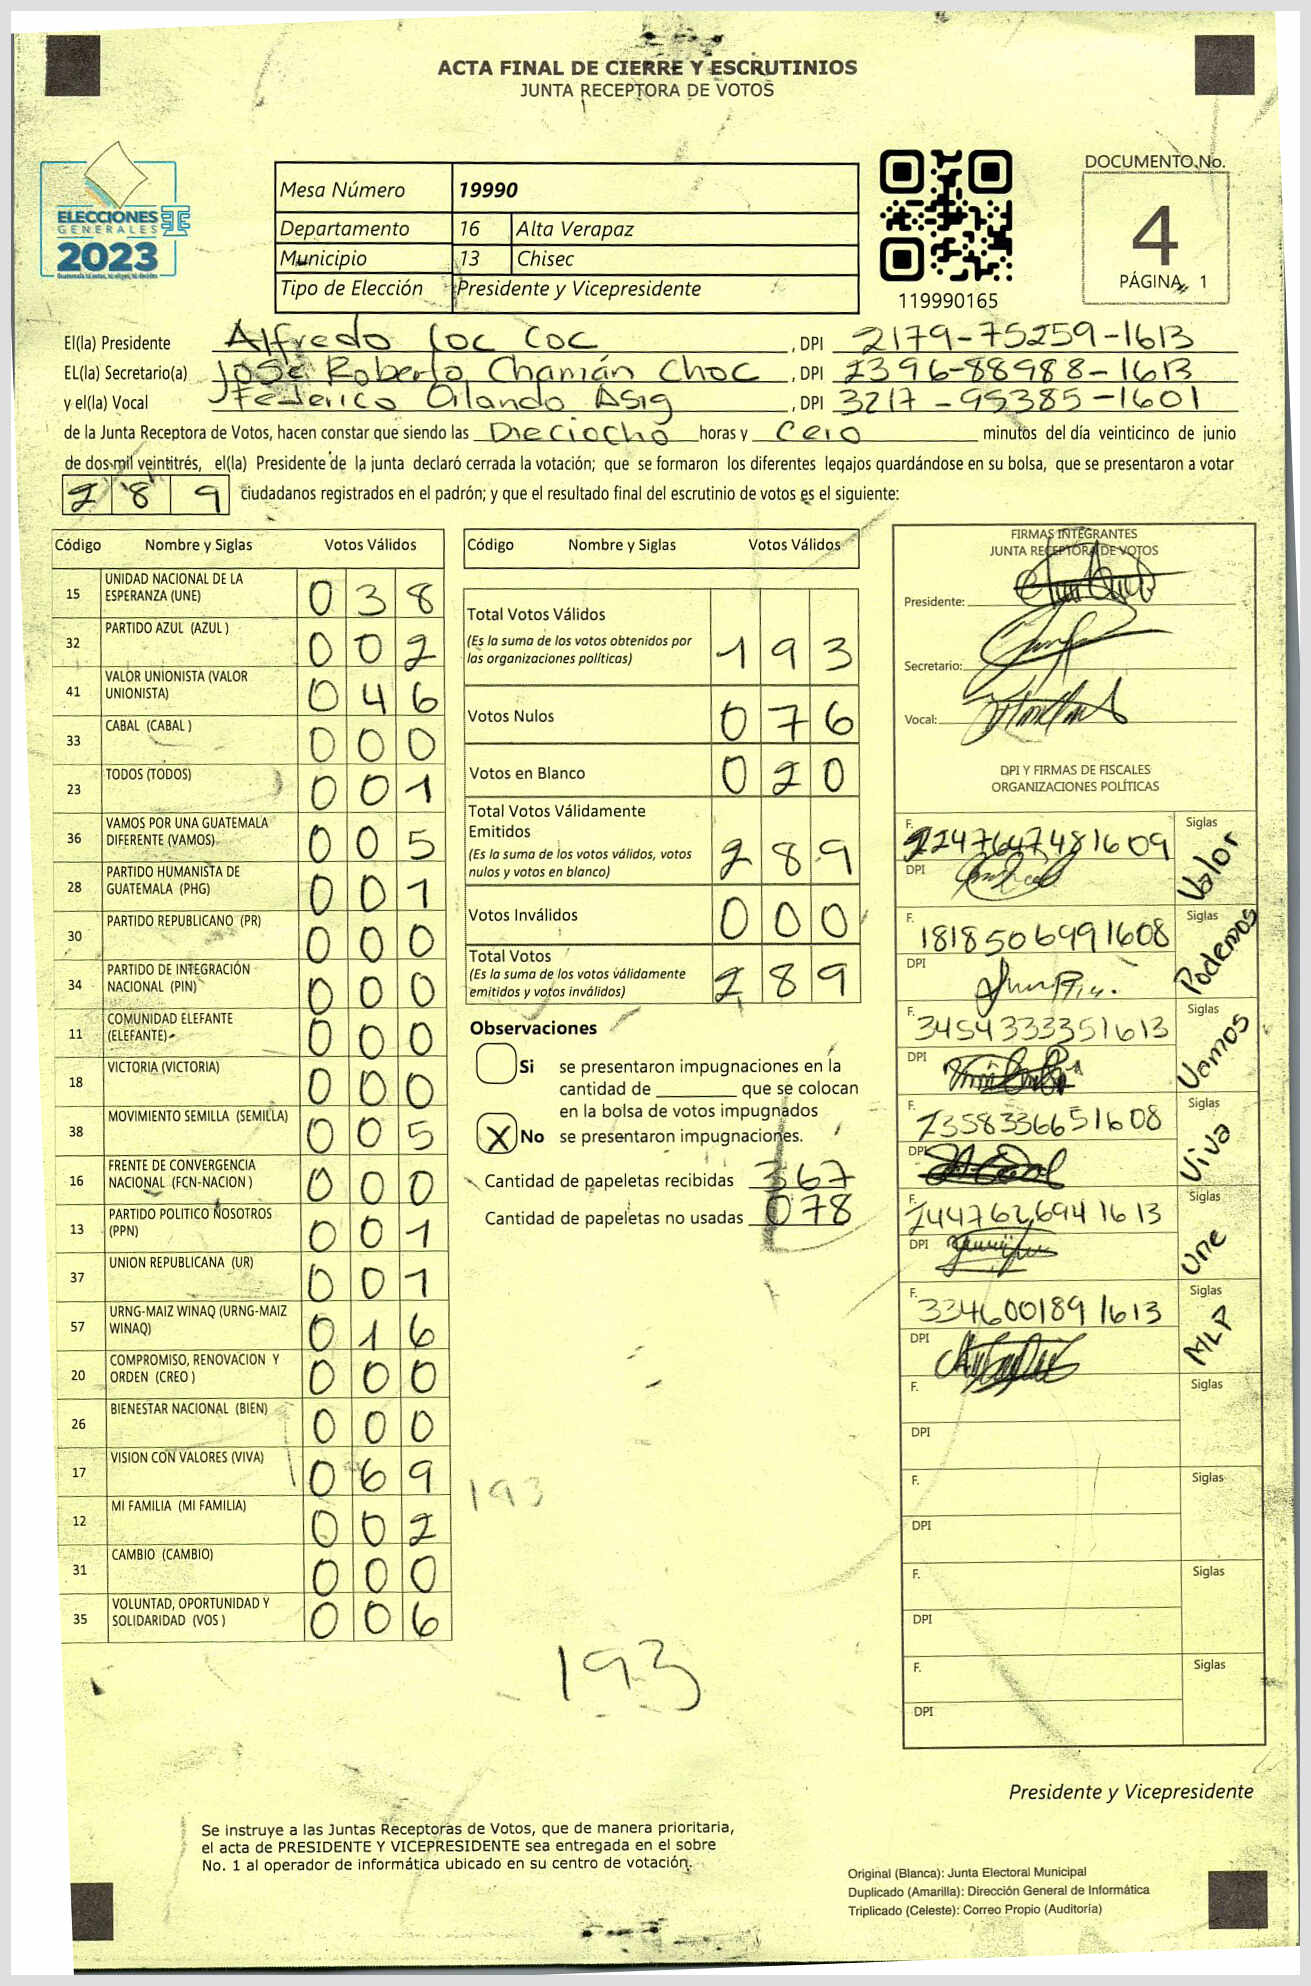 ACTA FINAL DE CIERRE Y ESCRUTINIOS
JUNTA RECEPTORA DE VOTOS
ELECCIONES
GENERALES
2023
Mesa Número 19990
Departamento 16 Alta Verapaz
Municipio 13 Chisec
Tipo de Elección Presidente y Vicepresidente
119990165
DOCUMENTO No.
4
PÁGINA 1
El(la) Presidente Alfredo Coc Coc , DPI 2179-75259-1613
EL(la) Secretario(a) José Roberto Chamán Choc , DPI 2396-88988-1613
y el(la) Vocal Federico Orlando Asig , DPI 3217-95385-1601
de la Junta Receptora de Votos, hacen constar que siendo las Dieciocho horas y Cero minutos del día veinticinco de junio
de dos mil veintitrés, el(la) Presidente de la junta declaró cerrada la votación; que se formaron los diferentes legajos quardándose en su bolsa, que se presentaron a votar
289 ciudadanos registrados en el padrón; y que el resultado final del escrutinio de votos es el siguiente:
Código Nombre y Siglas Votos Válidos
15 UNIDAD NACIONAL DE LA ESPERANZA (UNE) 038
32 PARTIDO AZUL (AZUL ) 002
41 VALOR UNIONISTA (VALOR UNIONISTA) 046
33 CABAL (CABAL ) 000
23 TODOS (TODOS) 001
36 VAMOS POR UNA GUATEMALA DIFERENTE (VAMOS) 005
28 PARTIDO HUMANISTA DE GUATEMALA (PHG) 001
30 PARTIDO REPUBLICANO (PR) 000
34 PARTIDO DE INTEGRACIÓN NACIONAL (PIN) 000
11 COMUNIDAD ELEFANTE (ELEFANTE) 000
18 VICTORIA (VICTORIA) 000
38 MOVIMIENTO SEMILLA (SEMILLA) 005
16 FRENTE DE CONVERGENCIA NACIONAL (FCN-NACION ) 000
13 PARTIDO POLITICO NOSOTROS (PPN) 001
37 UNION REPUBLICANA (UR) 001
57 URNG-MAIZ WINAQ (URNG-MAIZ WINAQ) 016
20 COMPROMISO, RENOVACION Y ORDEN (CREO ) 000
26 BIENESTAR NACIONAL (BIEN) 000
17 VISION CON VALORES (VIVA) 069
12 MI FAMILIA (MI FAMILIA) 002
31 CAMBIO (CAMBIO) 000
35 VOLUNTAD, OPORTUNIDAD Y SOLIDARIDAD (VOS ) 006
Código Nombre y Siglas Votos Válidos
Total Votos Válidos 193
(Es la suma de los votos obtenidos por
las organizaciones políticas)
Votos Nulos 076
Votos en Blanco 020
Total Votos Válidamente
Emitidos 289
(Es la suma de los votos válidos, votos
nulos y votos en blanco)
Votos Inválidos 000
Total Votos 289
(Es la suma de los votos válidamente
emitidos y votos inválidos)
Observaciones
Si se presentaron impugnaciones en la
cantidad de ________ que se colocan
en la bolsa de votos impugnados
X No se presentaron impugnaciones.
Cantidad de papeletas recibidas 367
Cantidad de papeletas no usadas 078
193
193
FIRMAS INTEGRANTES
JUNTA RECEPTORA DE VOTOS
Presidente:
Secretario:
Vocal:
DPI Y FIRMAS DE FISCALES
ORGANIZACIONES POLÍTICAS
F. 2247647481609 Siglas Valor
DPI
F. 1818506991608 Siglas Podemos
DPI
F. 3454333351613 Siglas Vamos
DPI
F. 2358336651608 Siglas Viva
DPI
F. 2447626941613 Siglas Une
DPI
F. 3346001891613 Siglas MLP
DPI
F. Siglas
DPI
F. Siglas
DPI
F. Siglas
DPI
F. Siglas
DPI
Presidente y Vicepresidente
Se instruye a las Juntas Receptoras de Votos, que de manera prioritaria,
el acta de PRESIDENTE Y VICEPRESIDENTE sea entregada en el sobre
No. 1 al operador de informática ubicado en su centro de votación.
Original (Blanca): Junta Electoral Municipal
Duplicado (Amarilla): Dirección General de Informática
Triplicado (Celeste): Correo Propio (Auditoría)